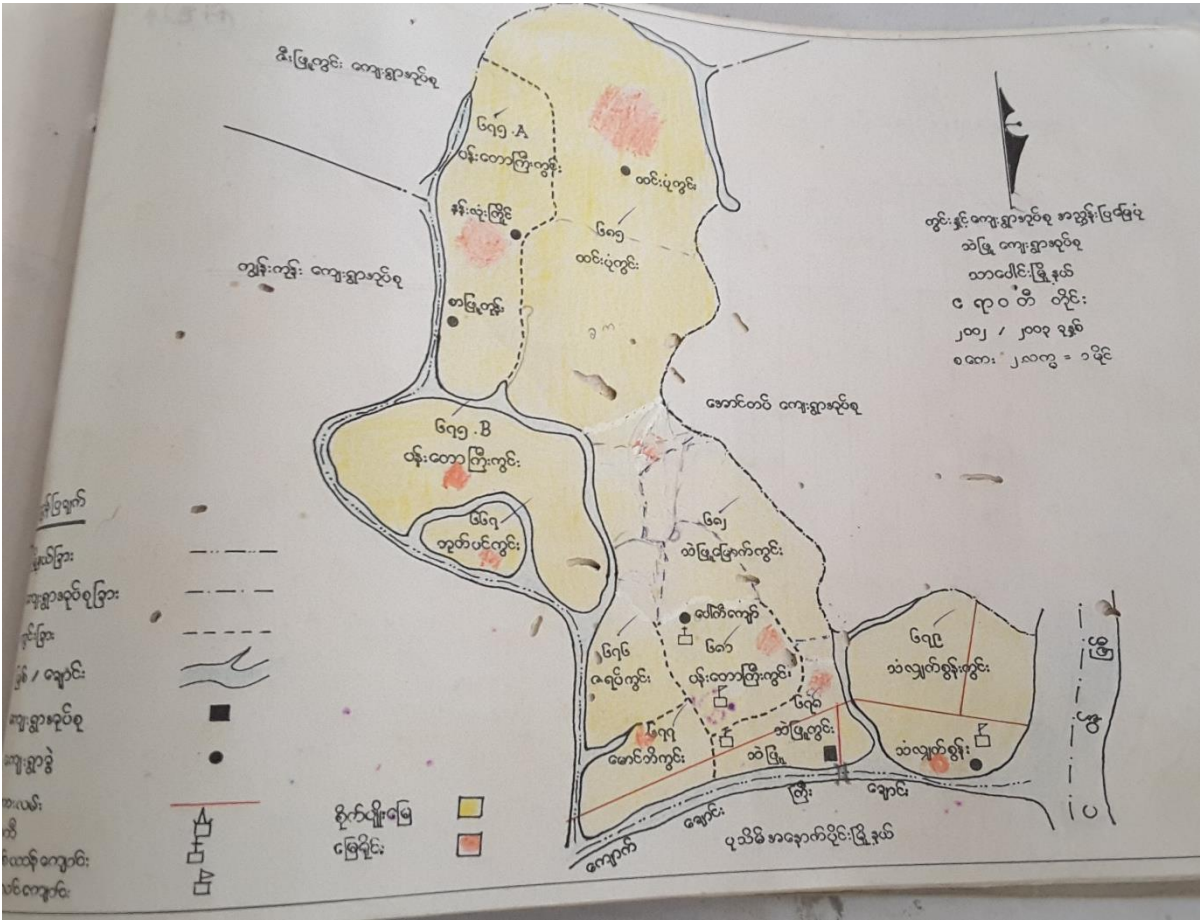 ဇီးဖြူကွင်း ကျေးရွာအုပ်စု
၆၇၅.A
ပန်းတောကြီးကွင်း
ထင်းပုံကွင်း
နန်းလုံးကြိုင်
၆၈၅
ထင်းပုံကွင်း
ကျွန်းကုန်း ကျေးရွာအုပ်စု
စာဖြူကုန်း
ကွင်းနှင့်ကျေးရွာအုပ်စု အညွှန်းပြမြေပုံ
သဲဖြူ ကျေးရွာအုပ်စု
သာပေါင်းမြို့နယ်
ဧရာဝတီ တိုင်း
၂၀၀၂ / ၂၀၀၃ ခုနှစ်
စကေး ၂လက္မ = ၁မိုင်
အောင်တပ် ကျေးရွာအုပ်စု
၆၇၅.B
ပန်းတောကြီးကွင်း
၆၆၇
ဘုတ်ပင်ကွင်း
၆၈၂
သဲဖြူမြောက်ကွင်း
ပေါ်ကီကျော်
၆၈၁
ပန်းတောကြီးကွင်း
၆၇၆
ဇရပ်ကွင်း
၆၇၉
သံလျှက်စွန်းကွင်း
၆၇၈
သဲဖြူကွင်း
သဲဖြူ
၆၇၇
မောင်ဘိကွင်း
သံလျှက်စွန်း
ကျောက် ချောင်း ကြီး ချောင်း
ပုသိမ်အနောက်ပိုင်းမြို့နယ်
မြို့နယ်ခြား
ကျေးရွာအုပ်စုခြား
ကွင်းခြား
မြစ် / ချောင်း
ကျေးရွာအုပ်စု
ကျေးရွာခွဲ
ကားလမ်း
စိုက်ပျိုးမြေ
မြေရိုင်း